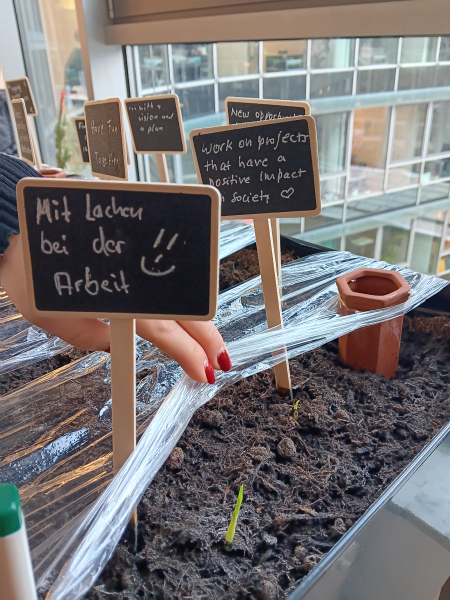 Mit Lachen
bei der
Arbeit
Work on projects
that have a
positive impact
society
New opportu
with a
vision and
a plan
Together